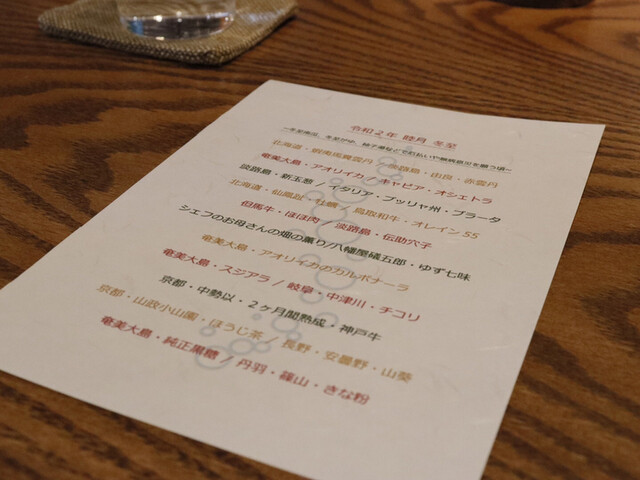 令和2年 睦月 冬至
北海道・蝦夷馬糞雲丹 / 淡路島・由良・赤雲丹
奄美大島・アオリイカ / キャビア・オシェトラ
淡路島・新玉葱 / イタリア・プッリャ州・ブラータ
北海道・仙鳳趾・牡蠣 / 鳥取和牛・オレイン55
但馬牛・ほほ肉 / 淡路島・伝助穴子
シェフのお母さんの畑の薫り/八幡屋礒五郎・ゆず七味
奄美大島・アオリイカのカルボナーラ
奄美大島・スジアラ / 岐阜・中津川・チコリ
京都・中勢以・2ヶ月間熟成・神戸牛
京都・山政小山園・ほうじ茶 / 長野・安曇野・山葵
奄美大島・純正黒糖 / 丹羽・篠山・きな粉